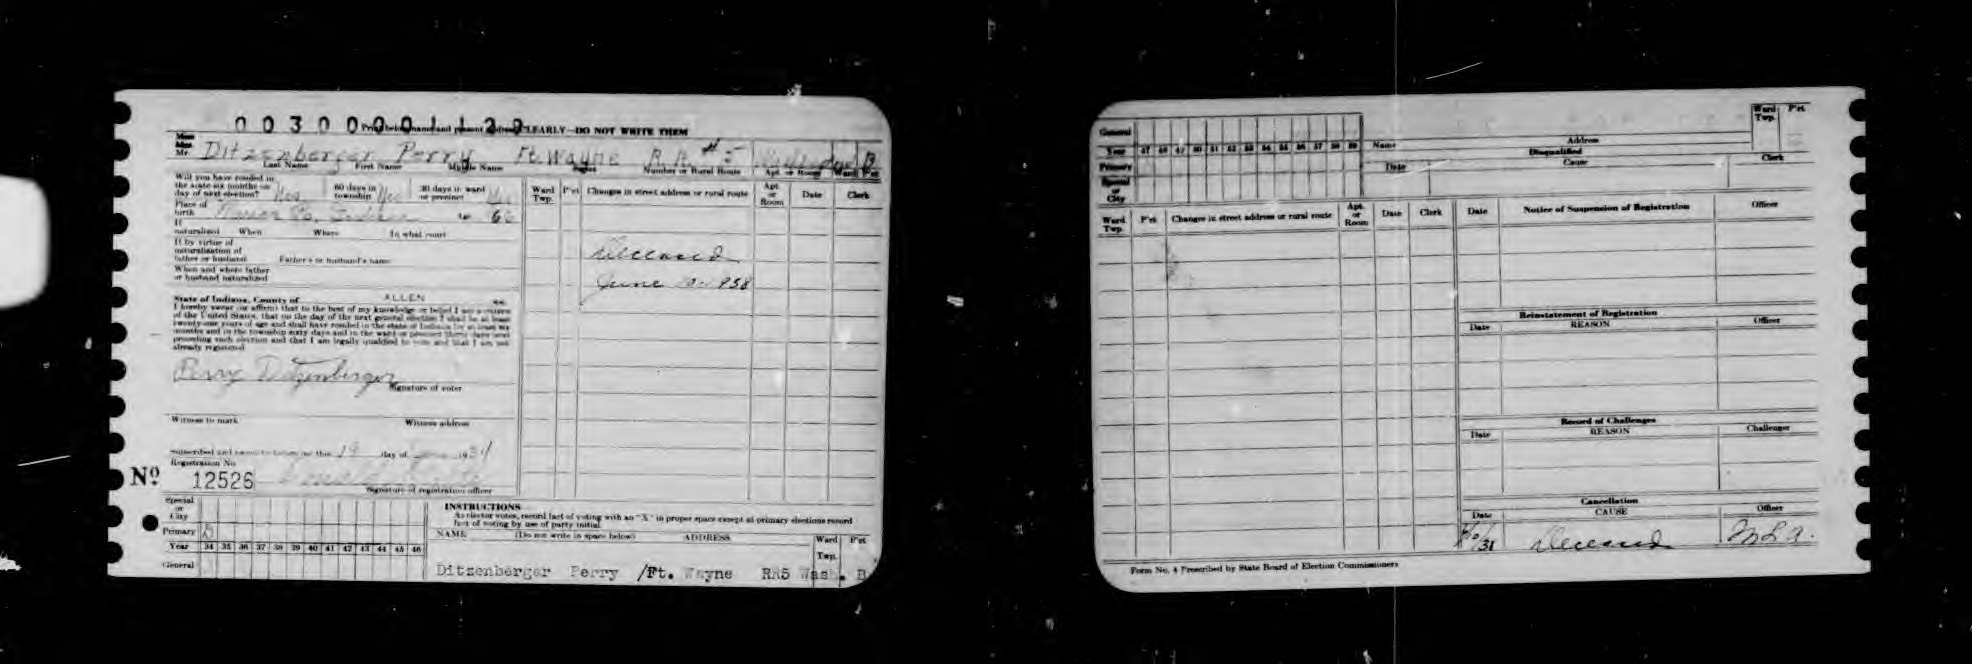 0 0 3 0 0 0 0 1 1 3 9
Print below name and present address CLEARLY—DO NOT WRITE THEM
Miss
Mrs.
Mr. Ditzenberger Perry Ft. Wayne R.R. # 5 B
Last Name First Name Middle Name Number or Rural Route Apt. or Room Ward P'ct
Will you have resided in
the state six months on
day of next election? Yes
60 days in
township Yes
30 days in ward
or precinct Yes
Place of
birth Co. Indiana
If
naturalized When Where In what court
If by virtue of
naturalization of
father or husband Father's or husband's name
When and where father
or husband naturalized
State of Indiana, County of ALLEN ss:
I hereby swear (or affirm) that to the best of my knowledge or belief I am a citizen
of the United States, that on the day of the next general election I shall be at least
twenty-one years of age and shall have resided in the state of Indiana for at least six
months and in the township sixty days and in the ward or precinct thirty days next
preceding such election and that I am legally qualified to vote and that I am not
already registered
Perry Ditzenberger
Signature of voter
Witness to mark Witness address
Subscribed and sworn to before me this 19 day of 1934
Registration No
No. 12526
Signature of registration officer
Special
or
City
Primary
Year 34 35 36 37 38 39 40 41 42 43 44 45 46
General
Ward
Twp.
P'ct
Changes in street address or rural route
Apt.
or
Room
Date
Clerk
Deceased
June 1938
INSTRUCTIONS
As elector votes, record fact of voting with an "X" in proper space except at primary elections record
fact of voting by use of party initial.
NAME (Do not write in space below) ADDRESS Ward Twp. P'ct
Ditzenberger Perry /Ft. Wayne RR5 Wash. B
General
Year 47 48 49 50 51 52 53 54 55 56 57 58 59
Primary
Special
or
City
Name Address
Ward
Twp.
P'ct
Disqualified
Date Cause Clerk
Ward
Twp.
P'ct
Changes in street address or rural route
Apt.
or
Room
Date
Clerk
Date Notice of Suspension of Registration Officer
Reinstatement of Registration
Date REASON Officer
Record of Challenges
Date REASON Challenger
Cancellation
Date CAUSE Officer
Deceased
Form No. 4 Prescribed by State Board of Election Commissioners